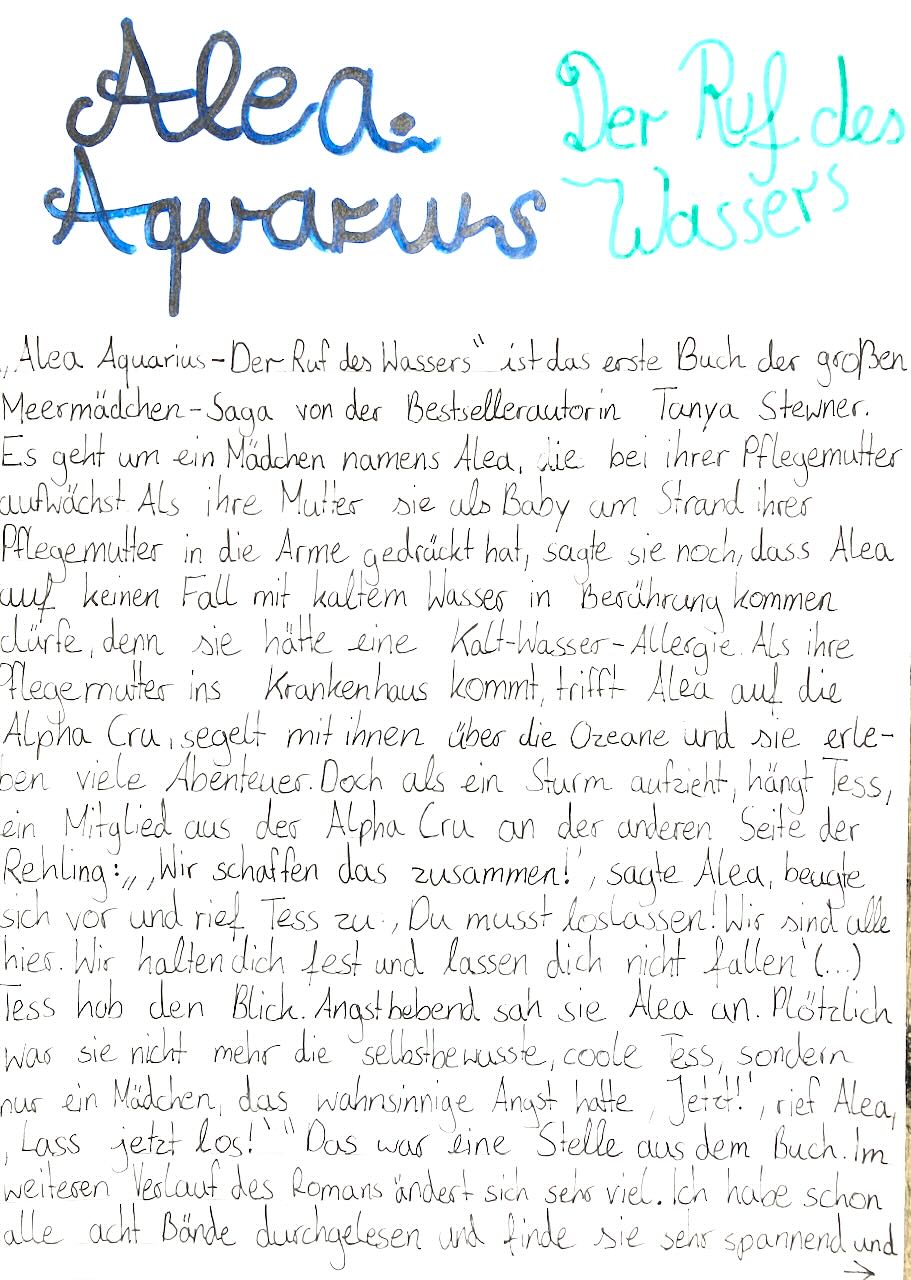 Alea
Aquarius
Der Ruf des
Wassers
„Alea Aquarius-Der Ruf des Wassers“ ist das erste Buch der großen
Meermädchen-Saga von der Bestsellerautorin Tanya Stewner.
Es geht um ein Mädchen namens Alea, die bei ihrer Pflegemutter
aufwächst. Als ihre Mutter sie als Baby am Strand ihrer
Pflegemutter in die Arme gedrückt hat, sagte sie noch, dass Alea
auf keinen Fall mit kaltem Wasser in Berührung kommen
dürfe, denn sie hätte eine Kalt-Wasser-Allergie. Als ihre
Pflegemutter ins Krankenhaus kommt, trifft Alea auf die
Alpha Cru, segelt mit ihnen über die Ozeane und sie erle-
ben viele Abenteuer. Doch als ein Sturm aufzieht, hängt Tess,
ein Mitglied aus der Alpha Cru an der anderen Seite der
Rehling: „‚Wir schaffen das zusammen!‘, sagte Alea, beugte
sich vor und rief Tess zu: ‚Du musst loslassen! Wir sind alle
hier. Wir halten dich fest und lassen dich nicht fallen‘ (...)
Tess hob den Blick. Angstbebend sah sie Alea an. Plötzlich
war sie nicht mehr die selbstbewusste, coole Tess, sondern
nur ein Mädchen, das wahnsinnige Angst hatte. ‚Jetzt!‘, rief Alea,
‚Lass jetzt los!‘“ Das war eine Stelle aus dem Buch. Im
weiteren Verlauf des Romans ändert sich sehr viel. Ich habe schon
alle acht Bände durchgelesen und finde sie sehr spannend und
→